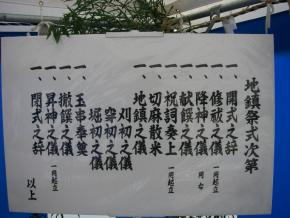 地鎮祭式次第
一、開式之辞
一、修祓之儀 一同起立
一、降神之儀 同右
一、献饌之儀
一、祝詞奏上 一同起立
一、切麻散米
一、地鎮之儀
刈初之儀
穿初之儀
堀初之儀
一、玉串奉奠
一、撤饌之儀
一、昇神之儀 一同起立
一、閉式之辞
以上